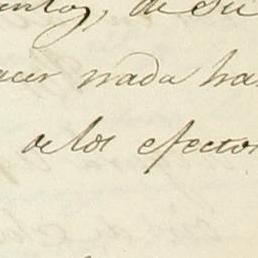 de su
acer nada ha
de los efector